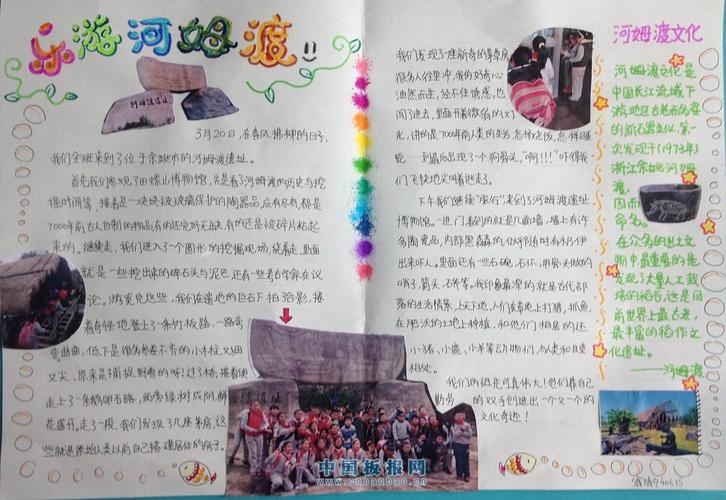 乐游河姆渡
3月20日，在春风拂柳的日子，
我们全班来到了位于余姚市的河姆渡遗址。
首先我们参观了田螺山博物馆，先是看了河姆渡的历史与挖
掘时间等，接着是一块块被玻璃保护的陶器品，应有尽有，都是
7000年前古人自制的物品，有的还完好无缺，有的还是被碎片粘起
来的，继续走，我们进入3个圆形的挖掘现场，绕着走，里面
就是一些挖出来的碎石头与泥巴，还有一些考古学家在议
论。游览完这些，我们在遗地的巨石下拍了合影，接
着奇怪地登上了一条竹板路，一路弯
弯曲曲，低下是很多参差不齐的小木柱，又细
又尖，原来是捕捉野兽的呀！过了桥，接着便
走上了一条鹅卵石路，两旁绿树成阴，鲜
花盛开，走了一段，我们发现了几座茅房，这
些就是原始人类以前自己搭建居住的房子。
我们发现了一座新奇的茅草房
很多人往里冲，我的好奇心
油然而生，经不住诱惑，也
闯了进去，里面开着微弱的灯
光，讲的是7000年前人类的生活，怎样烧饭，怎样睡
觉……到最后出现了个狗骨头，“啊!!!”吓得我
们飞快地尖叫着逃走了。
下午我们继续“旅行”来到了河姆渡遗址
博物馆。一进门看到的就是几面墙，墙上有许
多陶瓷品，内部黑森森的，似乎随时有木乃伊
出来吓人。里面还有一些石碗、石杯，用骨头做的
哨子，箭头，石斧等。我印象最深的就是古代部
落的生活情景，上天下地，人们在草地上打猎，抓鱼，
在肥沃的土地上种植，和他们相居的还
小猪、小鹿、小羊等动物们，与人类和睦
相处。
我们的祖先可真伟大！他们靠自己
勤劳的双手创造出一个又一个的
文化奇迹！
河姆渡文化
河姆渡文化是
中国长江流域下
游地区古老而多姿
的新石器文化，第一
次发现于(1973年)
浙江余姚河姆
渡，
因而
命名。
在众多的出土文
物中最重要的是
发现了大量人工栽
培的稻谷，这是目
前世界上最古老，
最丰富的稻作文
化遗址。
——河姆渡
中国板报网
www.cnbanbao.cn